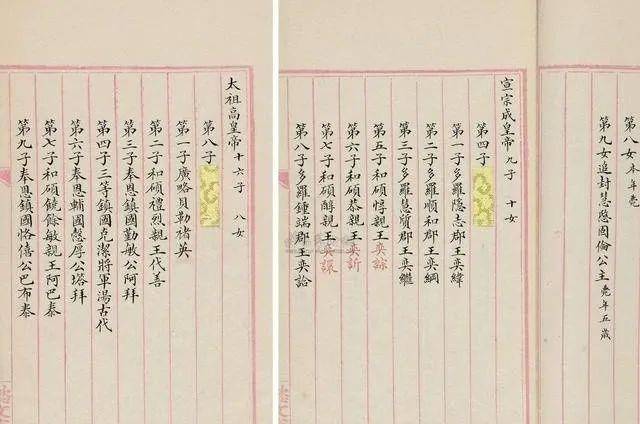 第八女本年薨
第九女追封慧愍固倫公主薨年五歲
宣宗成皇帝 九子 十女
第四子
第一子多羅隱志郡王奕緯
第二子多羅順和郡王奕綱
第三子多羅慧質郡王奕繼
第五子和碩惇親王奕誴
第六子和碩恭親王奕訢
第七子和碩醇親王奕譞
第八子多羅鍾端郡王奕詥
太祖高皇帝 十六子 八女
第八子
第一子廣略貝勒褚英
第二子和碩禮烈親王代善
第三子奉恩鎮國勤敏公阿拜
第四子三等鎮國克潔將軍湯古代
第六子奉恩輔國愨厚公塔拜
第七子和碩饒餘敏親王阿巴泰
第九子奉恩鎮國恪僖公巴布泰